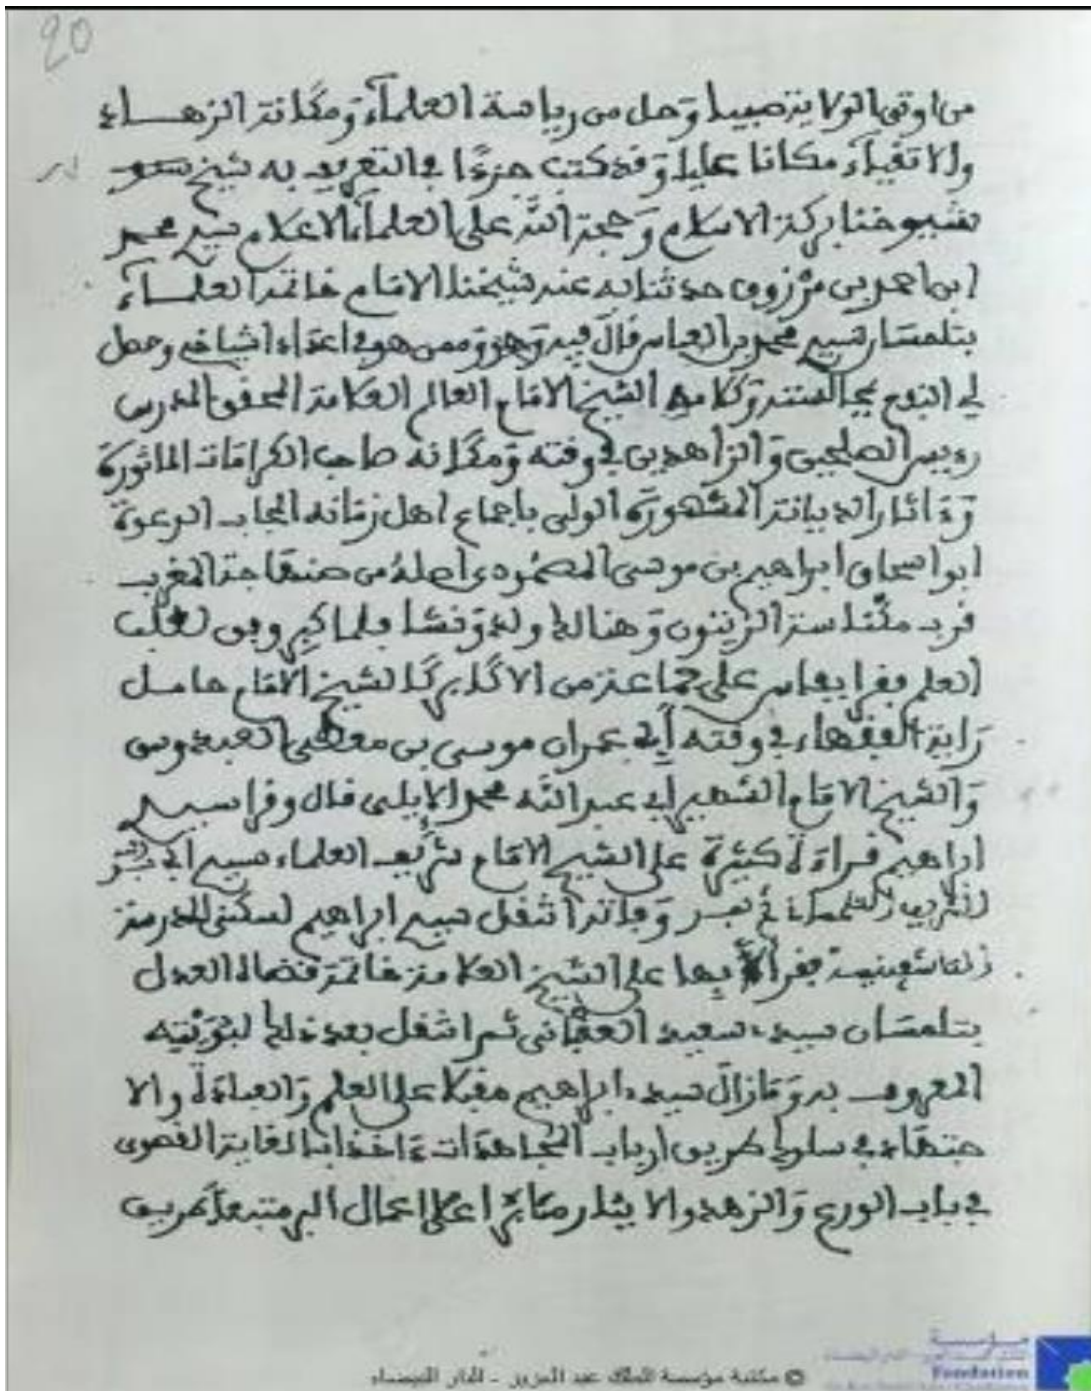 20
من اوتي الولاية صبيا وحل من رياسة العلماء ومكانة الزهاد
والاتقياء مكانا عليا وقد كتب جزءا في التعريف به شيخ
شيوخنا بركة الاسلام وحجة الله على العلماء الاعلام سيدي محمد
ابن احمد بن مرزوق حدثنا به عند شيخنا الامام خاتمة العلماء
بتلمسان سيدي محمد بن العباس قال فيه وهو وممن هو في اعداد اشياخي وحصل
لي النفع بمجالسته وكلامه الشيخ الامام العالم العلامة المحقق المدرس
رءيس الصلحين والزاهدين في وقته ومكانه صاحب الكرامات الماثورة
وءاثار الديانة المشهورة الولي باجماع اهل زمانه المجاب الدعوة
ابو اسحاق ابراهيم بن موسى المصمودي اصله من صنهاجة المغرب
قرب مكناسة الزيتون وهنالك ولد ونشا فلما كبر وبق لطلب
العلم فقرا بفاس على جماعة من الاكابر كالشيخ الامام حامل
راية الفقهاء في وقته أبي عمران موسى بن معطي العبدوسي
والشيخ الامام الشهير ابي عبد الله محمد الإبلي قال وقرا سيدي
ابراهيم قراءة كثيرة على الشيخ الامام شريف العلماء سيدي ابي
وفاته انتقل سيدي ابراهيم لسكنى المدرسة
التاشفينية فقرأ بها على الشيخ العلامة خاتمة قضاة العدل
بتلمسان سيدي سعيد العقباني ثم انتقل بعد ذلك لبويته
المعروف به وما زال سيدي ابراهيم مقبلا على العلم والعبادة والا
جتهاد في سلوك طريق ارباب المجاهدات ءاخذا بالغاية القصوى
في باب الورع والزهد والايثار مثابرا على اعمال البر متبعا طريق
© مكتبة مؤسسة الملك عبد العزيز - الدار البيضاء
مؤسسة
Fondation